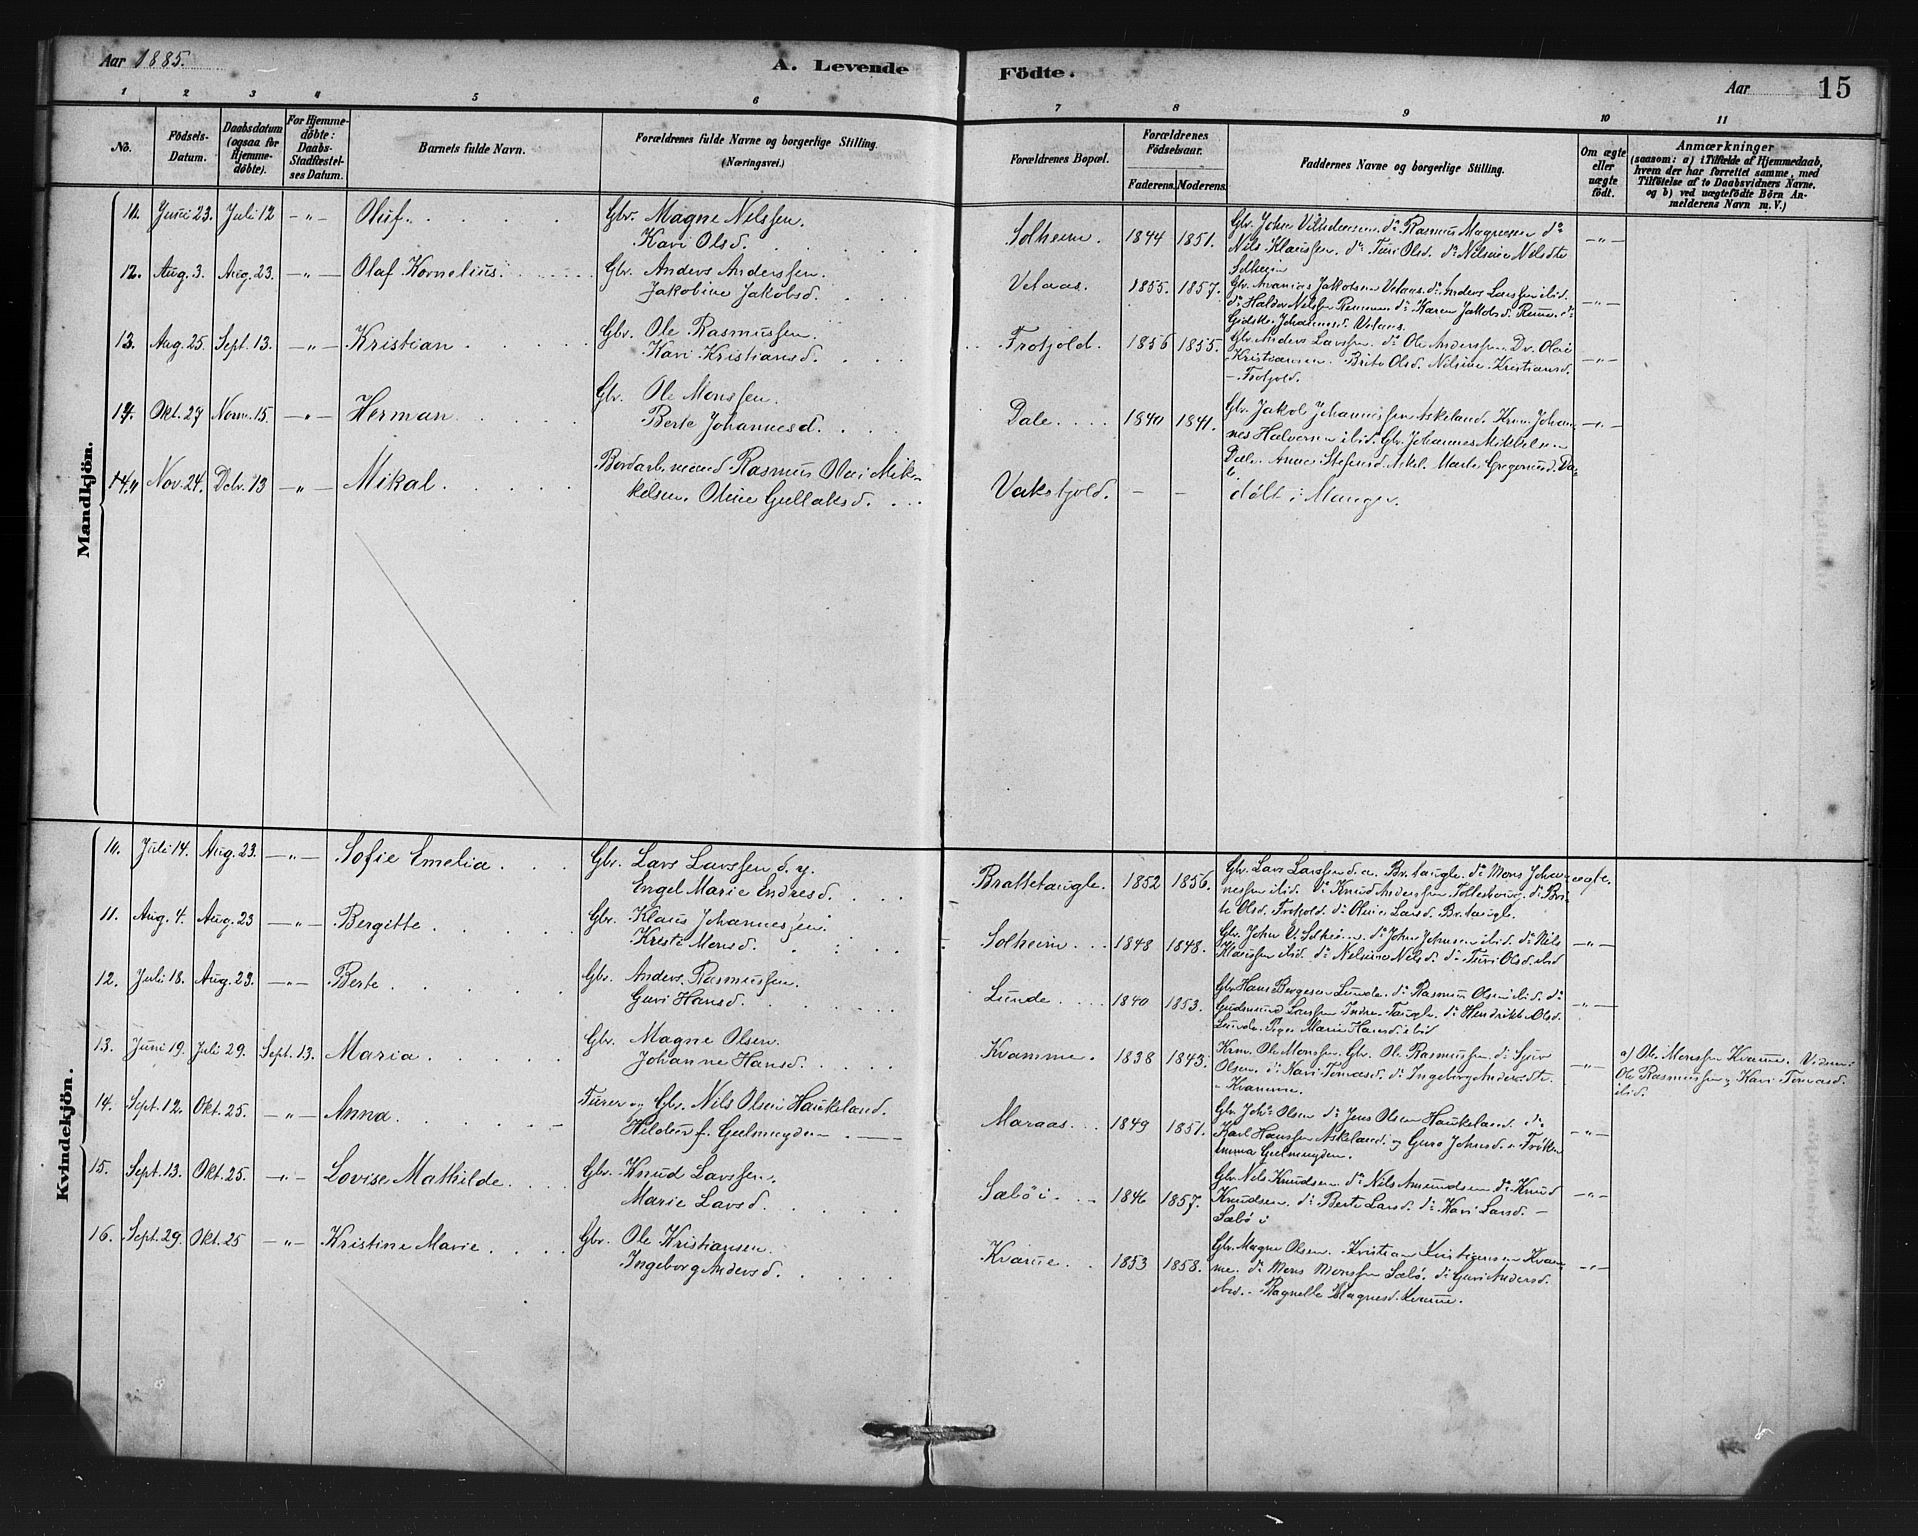 Aar 1885.
A. Levende Födte.
Aar 15
1 2 3 4 5 6 7 8 9 10 11
No.
Födsels-
Datum.
Daabsdatum
(ogsaa for
Hjemme-
döbte).
For Hjemme-
döbte:
Daabs-
Stadfæstel-
ses Datum.
Barnets fulde Navn.
Forældrenes fulde Navne og borgerlige Stilling.
(Næringsvei.)
Forældrenes Bopæl.
Forældrenes
Födselsaar.
Faderens. Moderens.
Faddernes Navne og borgerlige Stilling.
Om ægte
eller
uægte
födt.
Anmærkninger
(saasom: a) i Tilfælde af Hjemmedaab,
hvem der har forrettet samme, med
Tilföielse af to Daabsvidners Navne,
og b) ved uægtefödte Börn An-
melderens Navn m. V.)
Mandkjön.
11. Juni 23. Juli 12 -"- Oluf. Gbr. Magne Nilssen.
Kari Olsd.
Solheim. 1844 1851. Gbr. John Vilhelmsen. do Rasmus Magnesen do
Nils Klaussen. do Turi Olsd. do Nilsine Nilsdtr
Solheim -"-
12. Aug. 3. Aug. 23. -"- Olaf Kornelius. Gbr. Anders Anderssen.
Jakobine Jakobsd.
Velaas. 1855. 1857. Gbr. Ananias Jakobsen Velaas. do Anders Larssen ibid.
do Haldor Nilssen do Karen Jakobsd.
Johannesd. Velaas. -"-
13. Aug. 25. Sept. 13. -"- Kristian. Gbr. Ole Rasmussen.
Kari Kristiansd.
Frotjold. 1856 1855. Gbr. Anders Larssen. do Ole Anderssen. Olai
Kristiansen. Brite Olsd. Nilsine Kristiansd.
- Frotjold. -"-
14. Okt. 27 Novm. 15. -"- Herman. Gbr. Ole Monssen.
Berte Johannesd.
Dale. 1840 1841. Gbr. Jakob Johannessen Askeland. Johan-
nes Halvorsen ibid. Gbr. Johannes Mikkelsen
Dale. Anne Marte Gregoriusd. Da-
le. -"-
14." Nov. 24. Debr. 13 -"- Mikal. Rasmus Olai Mik-
kelsen. Oline Gullaksd.
- - döbt i Manger.
Kvindekjön.
10. Juli 14. Aug. 23. -"- Sofie Emelia. Gbr. Lars Larssen d. y.
Engel Marie Endresd.
Brattetaugle. 1852 1856. Gbr. Lars Larssen d. æ. Br.taugle. do Mons Johan-
nessen ibid. do Knud Anderssen do Bri-
te Olsd. Frotjold. do Oline Larsd. Br.taugle. ægte.
11. Aug. 4. Aug. 23 -"- Bergitte. Gbr. Klaus Johannessen.
Kristi Monsd.
Solheim. 1848 1848. Gbr. John V. Solheim. do John Johnsen ibid. do Nils
Klaussen ibid. do Nilsine Nilsd. do Turi Olsd. ibid -"-
12. Juli 18. Aug. 23. -"- Berte. Gbr. Anders Rasmussen.
Guri Hansd.
Lunde. 1840 1853. Gbr. Hans Børgesen Lunde. do Rasmus Olsen ibid. do
Gudmund Larssen Indre-Taugle. do Hendrikke Olsd.
Lunde. Pige Marie Hansd. ibid -"-
13. Juni 19. Juli 29. Sept. 13. Maria. Gbr. Magne Olsen.
Johanne Hansd.
Kvamme. 1838 1843. Krm. Ole Monssen. Gbr. Ole Rasmussen. do Sjur
Olsen. do Kari Tomasd. do Ingeborg Andersdtr.
- Kvamme. -"- a) Ole Monssen Kvamme. Vidner:
Ole Rasmussen og Kari Tomasd.
ibid.
14. Sept. 12. Okt. 25. -"- Anna. og Gbr. Nils Olsen Haukeland.
Hildur f. Geelmuyden.
Maraas. 1849 1851. Gbr. Johs Olsen do Jens Olsen Haukeland. do
Karl Hanssen Askeland. og Guro Johnsd. Frøken
Emma Geelmuyden. -"-
15. Sept. 13. Okt. 25. -"- Lovise Mathilde. Gbr. Knud Larssen.
Marie Larsd.
Sæbö i. 1846 1857. Gbr. Nils Knudsen do Nils Amundsen do Knud
Knudsen. do Berte Larsd. do Kari Larsd. -
Sæbö i -"-
16. Sept. 29. Okt. 25 -"- Kristine Marie. Gbr. Ole Kristiansen.
Ingeborg Andersd.
Kvamme. 1853 1858. Gbr. Magne Olsen. Kristian Kristiansen Kvam-
me. do Mons Monssen Sæbö. do Guri Andersd.
ibid. - Magnesd. Kvamme. -"-